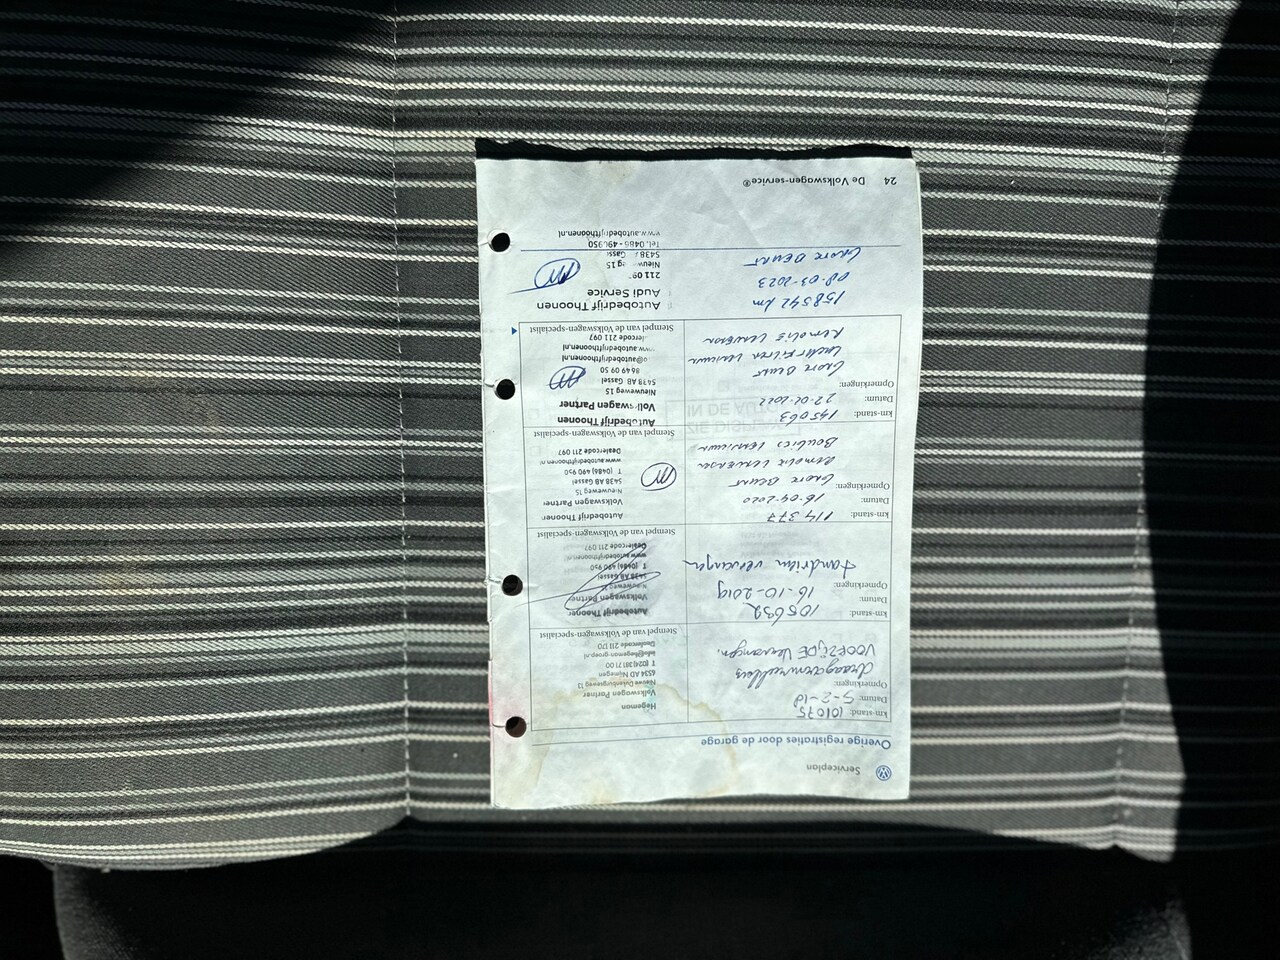 Serviceplan
Overige registraties door de garage
km-stand: 101075
Datum: 5-2-18
Opmerkingen:
draagarmrubbers
VOORZIJDE Vervangen.
Hegeman
Volkswagen Partner
Nieuwe Dukenburgseweg 13
6534 AD Nijmegen
T (024) 381 71 00
info@hegeman-groep.nl
Dealercode 211 170
Stempel van de Volkswagen-specialist
km-stand: 105632
Datum: 16-10-2019
Opmerkingen:
tandriem vervangen
Autobedrijf Thoonen
Volkswagen Partner
Nieuweweg 15
5438 AB Gassel
T (0486) 490 950
www.autobedrijfthoonen.nl
Dealercode 211 097
Stempel van de Volkswagen-specialist
km-stand: 114377
Datum: 16-04-2020
Opmerkingen:
Grote Beurt
Remolie verversen
Bougies vernieuwen
Autobedrijf Thoonen
Volkswagen Partner
Nieuweweg 15
5438 AB Gassel
T (0486) 490 950
www.autobedrijfthoonen.nl
Dealercode 211 097
Stempel van de Volkswagen-specialist
km-stand: 145063
Datum: 22-02-2022
Opmerkingen:
Grote Beurt
Luchtfilter vernieuwen
Remolie verversen
Autobedrijf Thoonen
Volkswagen Partner
Nieuweweg 15
5438 AB Gassel
www.autobedrijfthoonen.nl
211 097
Stempel van de Volkswagen-specialist
158542 km
08-03-2023
Grote Beurt
Autobedrijf Thoonen
Audi Service
5438
Tel. 0486-490950
www.autobedrijfthoonen.nl
24 De Volkswagen-service®